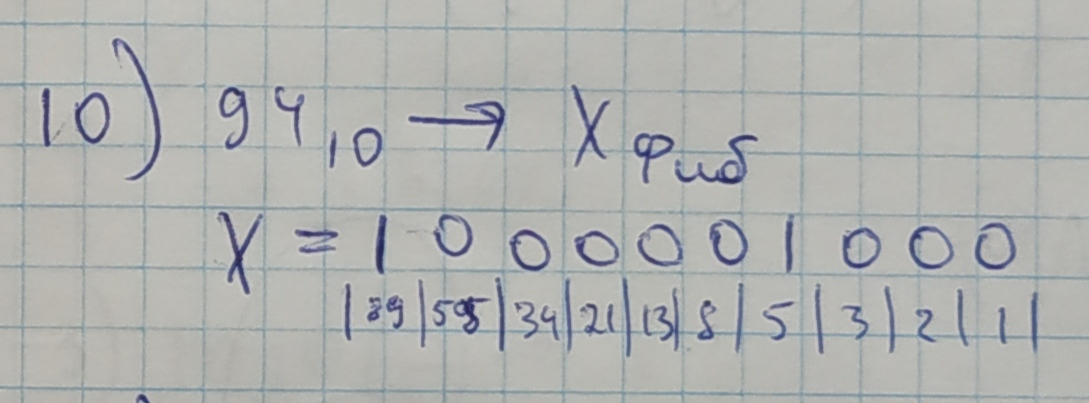 10) 94₁₀ → X фиб
X = 1 0 0 0 0 0 1 0 0 0
|89|55|34|21|13|8|5|3|2|1|